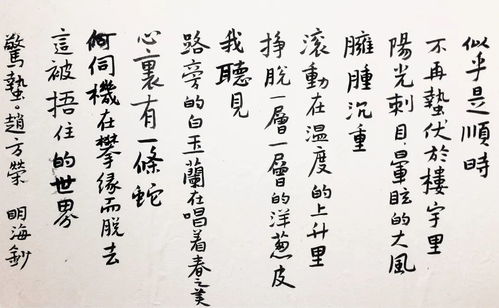 似乎是順時
不再蟄伏於樓宇里
陽光刺目暈眩的大風
臃腫沉重
滚動在温度的上升里
掙脱一層一層的洋葱皮
我聽見
路旁的白玉蘭在唱着春之美
心裏有一條蛇
伺機在攀缘而脱去
這被捂住的世界
驚蟄。趙方榮 明海鈔